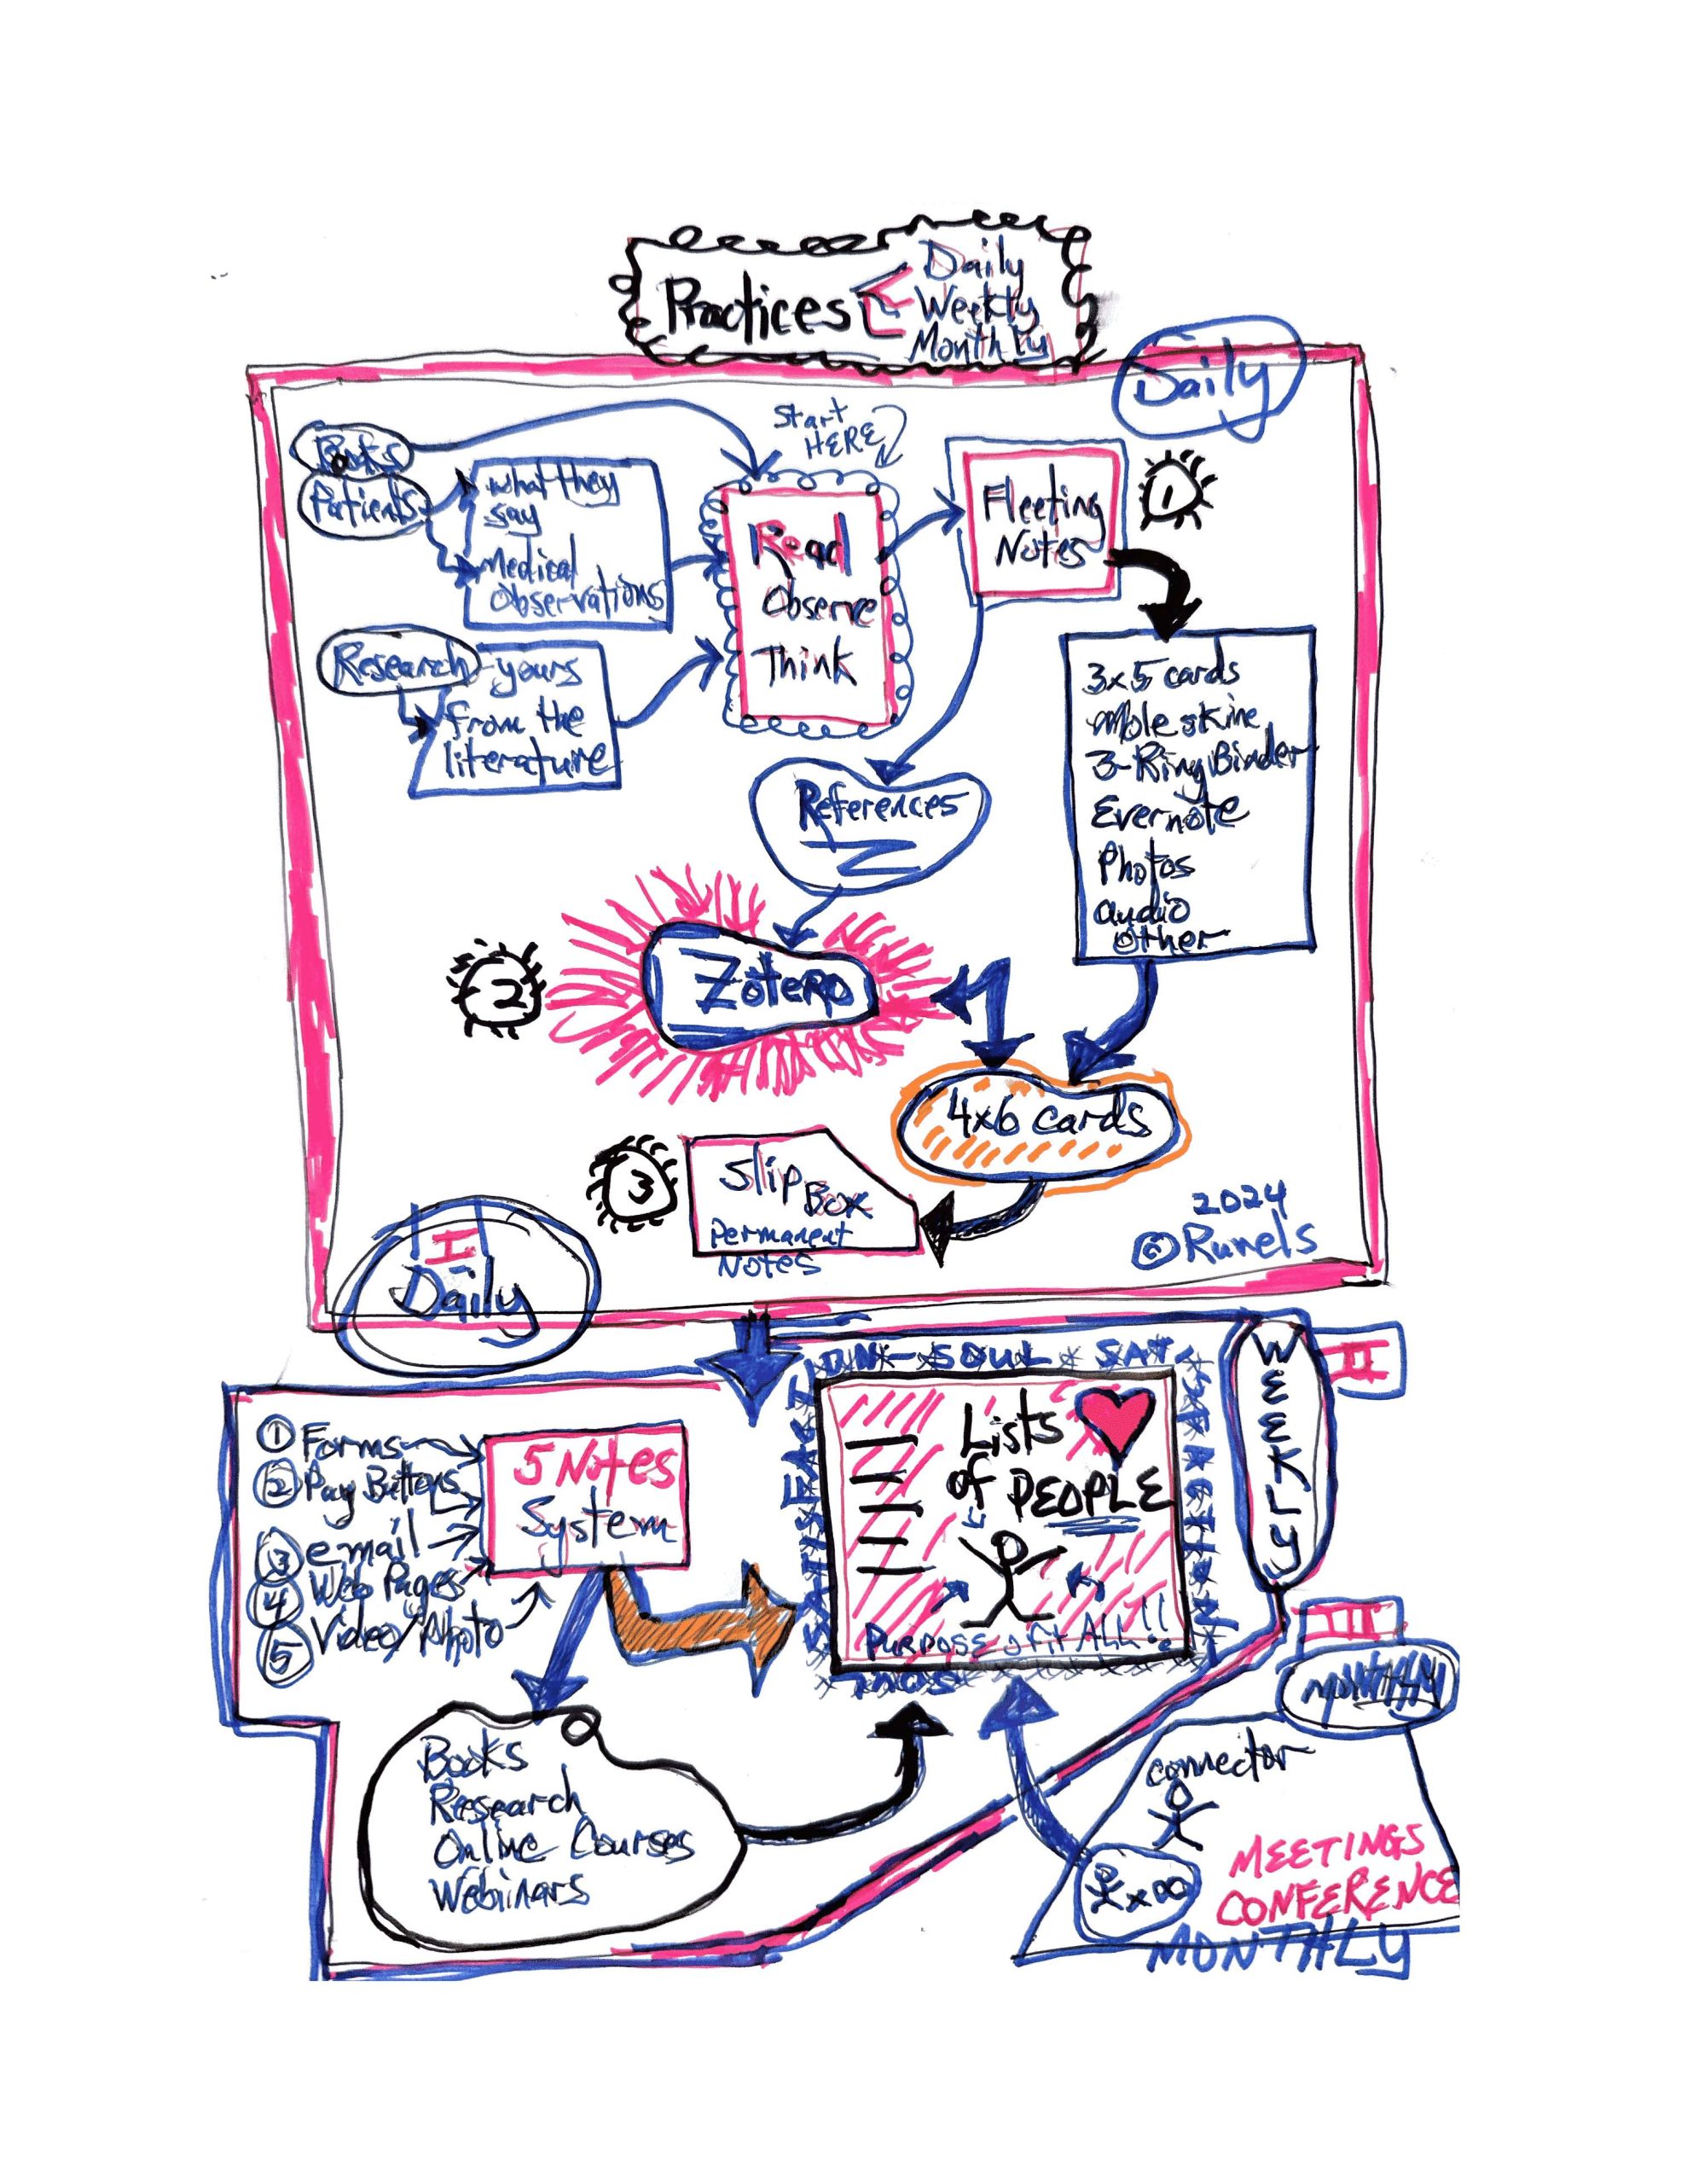 Practices
Daily
Weekly
Monthly
Daily
Start
HERE
Books
Patients
what they
say
Medical
Observations
Research
-yours
from the
literature
Read
Observe
Think
Fleeting
Notes
1
3x5 cards
moleskine
3-Ring Binder
Evernote
Photos
audio
other
References
Zotero
2
4x6 cards
3
Slip Box
Permanent
Notes
2024
© Runels
I
Daily
WEEKLY
II
1 Forms
2 Pay Buttons
3 email
4 Web Pages
5 Video/Photo
5 Notes
System
SOUL SAT
ISFACTION
Lists
of PEOPLE
PURPOSE of it ALL!!
Books
Research
Online Courses
Webinars
III
MONTHLY
connector
x∞
MEETINGS
CONFERENCE
MONTHLY